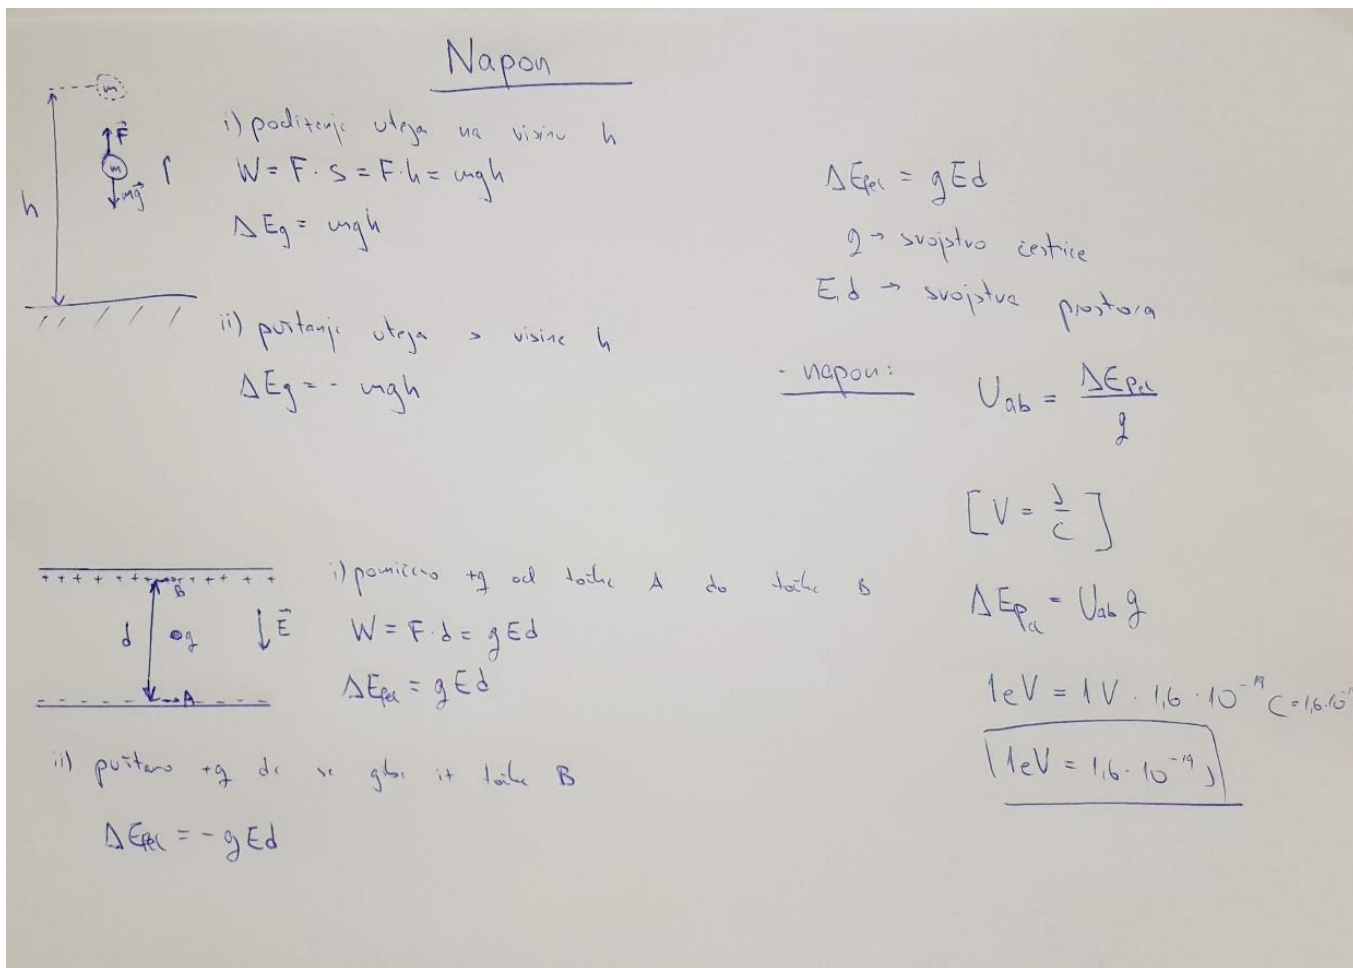 Napon
m
F
m
mg
h
i) podizanje utega na visinu h
W = F · s = F·h = mgh
ΔEg = mgh
ii) puštanje utega s visine h
ΔEg = - mgh
+ + + + + + + + + + + +
B
d
q
E
A
- - - - - - - - -
i) pomičemo +q od točke A do točke B
W = F · d = qEd
ΔEpel = qEd
ii) puštamo +q da se giba iz točke B
ΔEpel = - qEd
ΔEpel = qEd
q → svojstvo čestice
E, d → svojstva prostora
- napon:
Uab = ΔEpel / q
[V = J / C]
ΔEpel = Uab q
1eV = 1V · 1,6 · 10^-19 C = 1,6·10
1eV = 1,6 · 10^-19 J